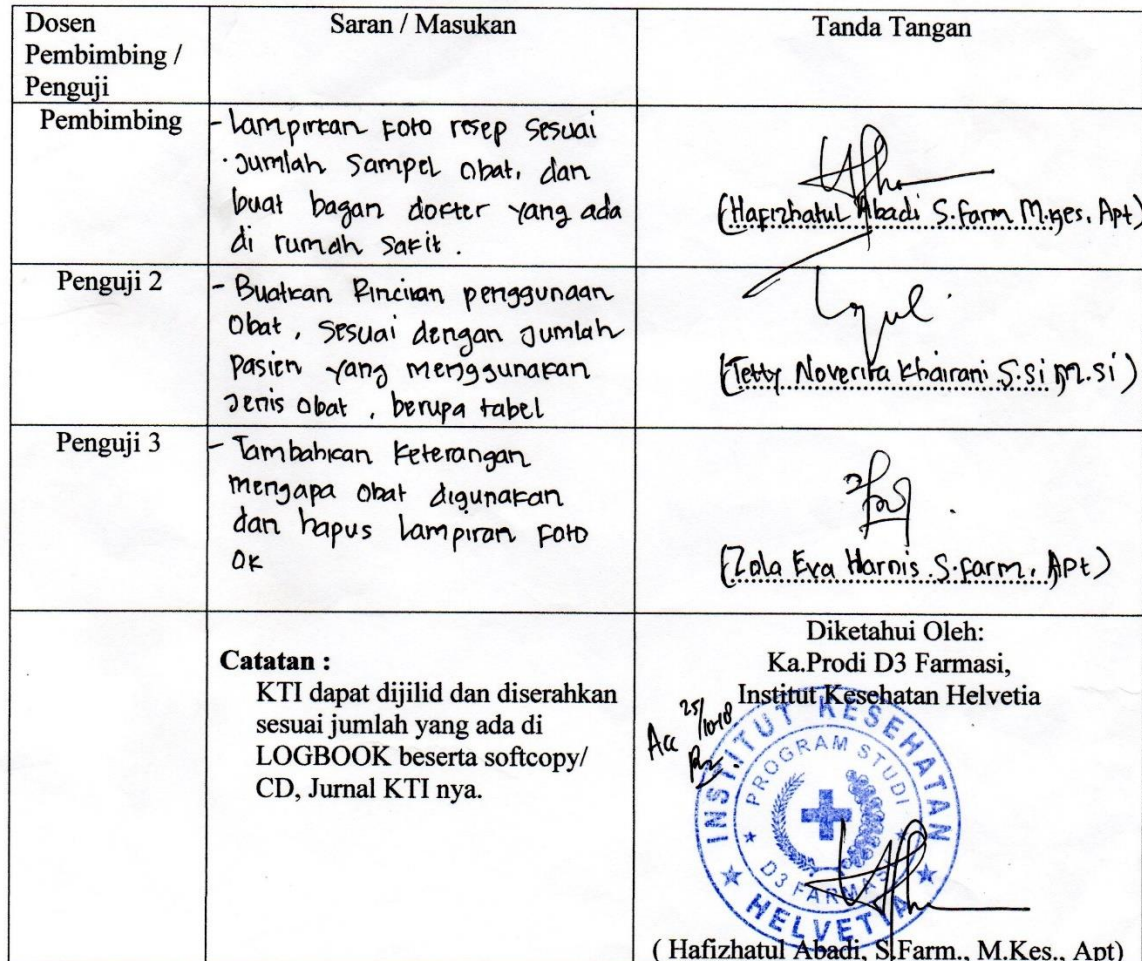 Dosen
Pembimbing /
Penguji
Saran / Masukan
Tanda Tangan
Pembimbing
- Lampirkan Foto resep sesuai
Jumlah Sampel Obat, dan
buat bagan dokter yang ada
di rumah sakit.
(Hafizhatul Abadi S.farm M.kes. Apt)
Penguji 2
- Buatkan Rincian penggunaan
Obat, sesuai dengan Jumlah
Pasien yang menggunakan
Jenis Obat, berupa tabel
(Tetty Noverita Khairani S.Si M.Si)
Penguji 3
- Tambahkan Keterangan
mengapa Obat digunakan
dan hapus lampiran Foto
OK
(Zola Eva Harnis S.farm, Apt)
Catatan :
KTI dapat dijilid dan diserahkan
sesuai jumlah yang ada di
LOGBOOK beserta softcopy/
CD, Jurnal KTI nya.
Diketahui Oleh:
Ka.Prodi D3 Farmasi,
Institut Kesehatan Helvetia
Acc
INSTITUT KESEHATAN
PROGRAM STUDI
D3 FARMASI
HELVETIA
( Hafizhatul Abadi, S.Farm., M.Kes., Apt)